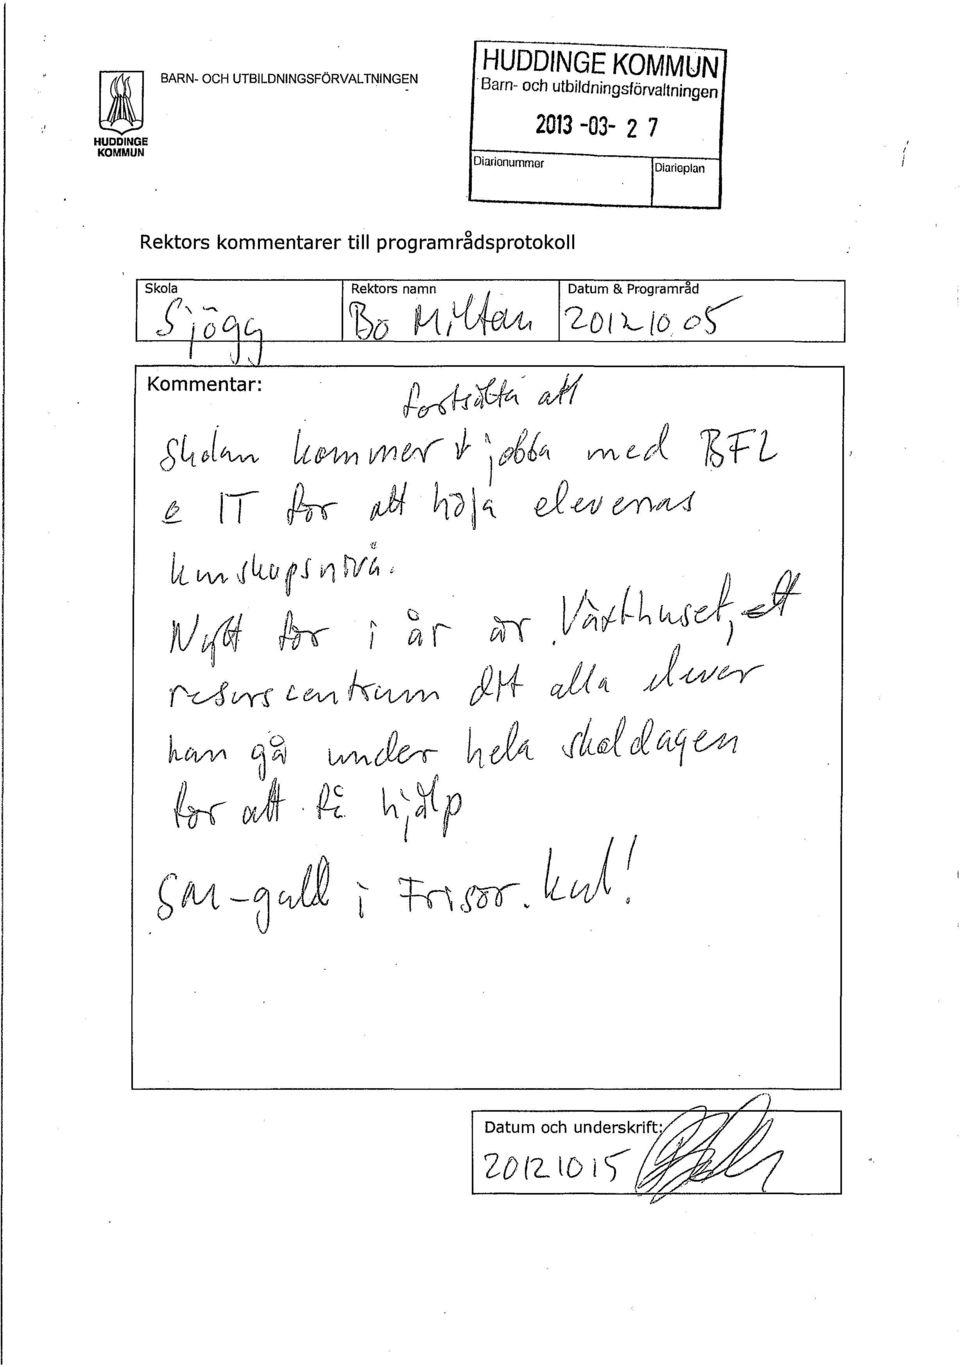 BARN- OCH UTBILDNINGSFÖRVALTNINGEN
HUDDINGE
KOMMUN
HUDDINGE KOMMUN
Barn- och utbildningsförvaltningen
2013 -03- 2 7
Diarienummer
Diarieplan
Rektors kommentarer till programrådsprotokoll
Skola
Rektors namn
Datum & Programråd
Sjögy
Bo
2012 10 05
Kommentar:
fortsätta att
Skolan kommer jobba med BFL
& IT för att höja elevernas
kunskapsnivå.
Nytt för i år är Växthuset, ett
resurscentrum dit alla elever
kan gå under hela skoldagen
för att få hjälp
SM-guld i Frisör. kul!
Datum och underskrift:
2012 10 15